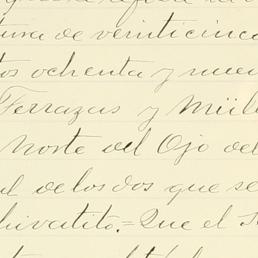 tura de veinticinco
tos ochenta y nueve
Terrazas y Müll
Norte del Ojo del
al de los dos que se
hivatito.=Que el